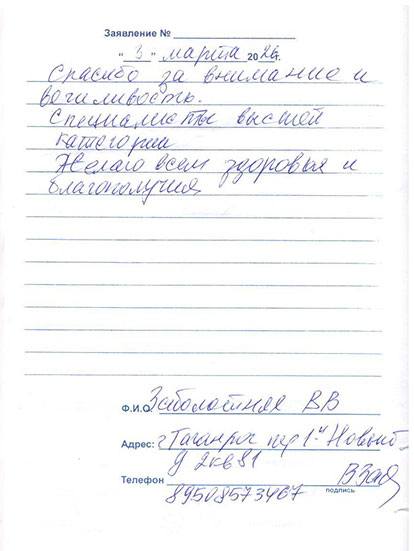 Заявление №
"3" марта 2026г.
Спасибо за внимание и
вежливость.
Специалисты высшей
категории
Желаю всем здоровья и
благополучия
Ф.И.О. Заболотная ВВ
Адрес: г Таганрог пер 1-й Новый
д 2 кв 81
Телефон
89508573467 подпись